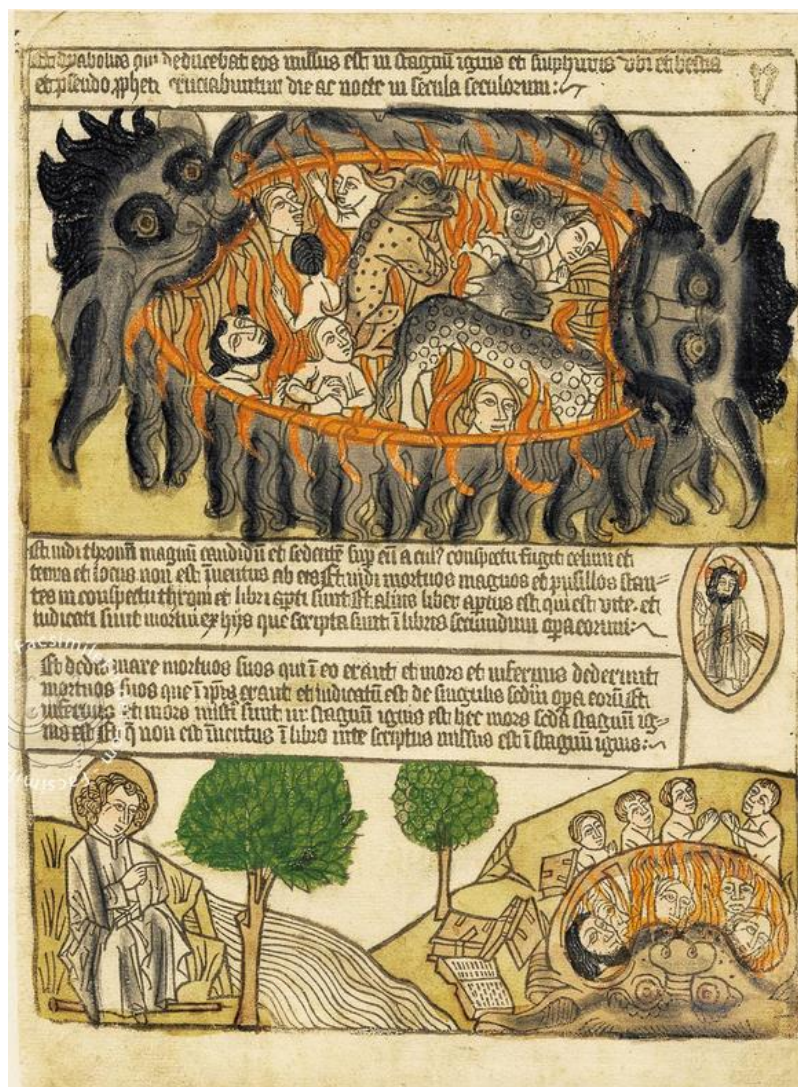 Et dyabolus qui deducebat eos missus est in stagnū ignis et sulphuris vbi et bestia
et pseudo ꝓphetꝫ cruciabuntur die ac nocte in secula seculorum:
Et vidi thronū magnū candidū et sedentē sup eū a cuiꝰ conspectu fugit celum et
terra et locus non est īuentus ab eis Et vidi mortuos magnos et pusillos stan⸗
tes in conspectu throni et libri apti sunt Et alius liber aptus est qui est vite et
iudicati sunt mortui ex hijs que scripta sunt ī libris secundum opa eorum:
Et dedit mare mortuos suos qui ī eo erant et mors et infernus dederunt
mortuos suos que ī ipis erant et iudicatū est de singulis sedm opa eorū Et
infernus et mors missi sunt in stagnū ignis est hec mors sedā stagnū ig⸗
nis est Et q̄ non est īuentus ī libro vite scriptus missus est ī stagnū ignis: